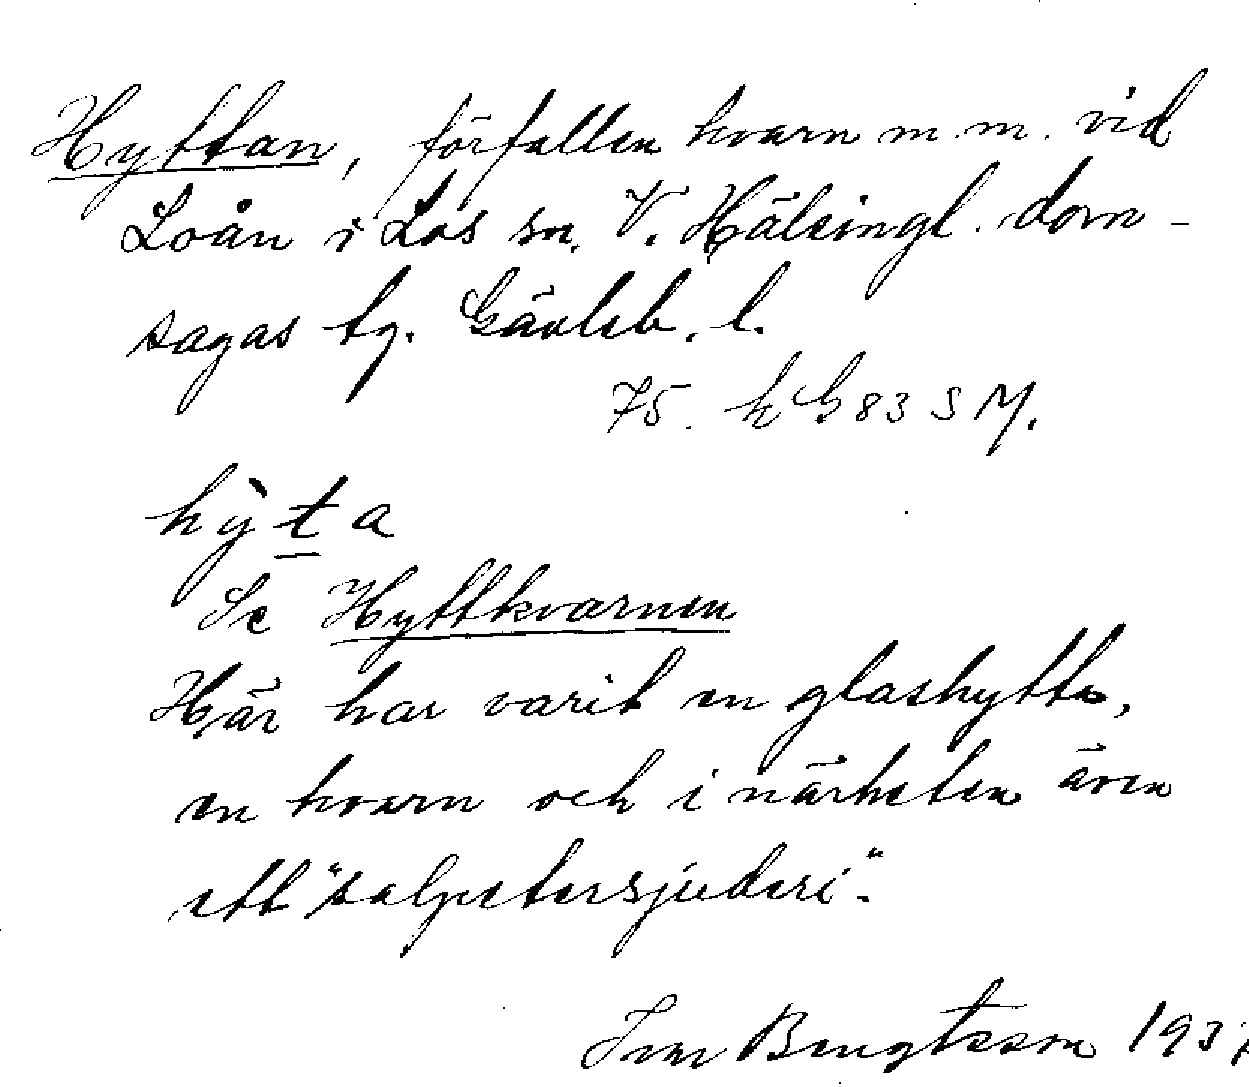 Hyttan, förfallen kvarn m m. vid
Loån i Los sn. V. Hälsingl. dom-
sagas tg. Gävleb. l.
75. h G 83 S M.
hỳta
Se Hyttkvarnen
Här har varit en glashytta,
en kvarn och i närheten även
ett "salpetersjuderi".
Bengtsson